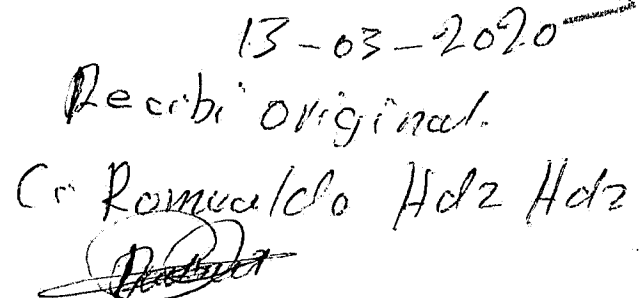 13-03-2020
Recibi original.
Cr Romualdo Hdz Hdz